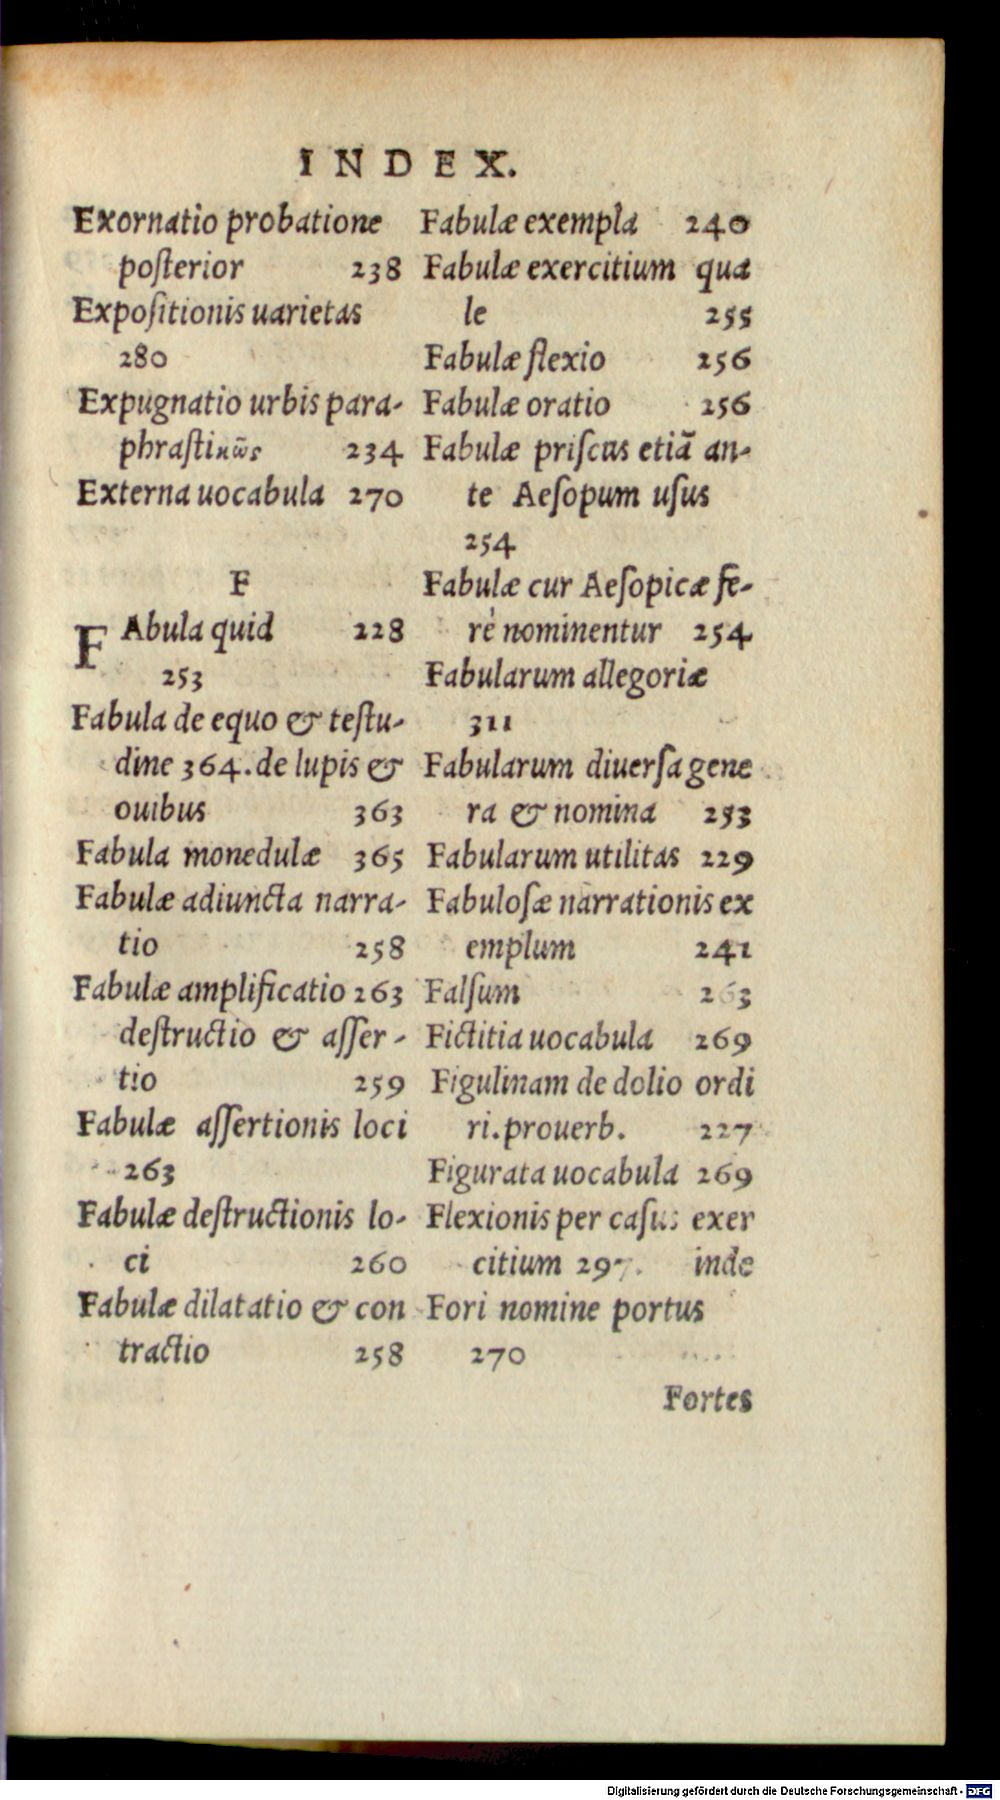 INDEX.
Exornatio probatione
posterior 238
Expositionis uarietas
280
Expugnatio urbis para-
phrastiκῶς 234
Externa uocabula 270
F
FAbula quid 228
253
Fabula de equo & testu-
dine 364. de lupis &
ouibus 363
Fabula monedulæ 365
Fabulæ adiuncta narra-
tio 258
Fabulæ amplificatio 263
destructio & asser-
tio 259
Fabulæ assertionis loci
263
Fabulæ destructionis lo-
ci 260
Fabulæ dilatatio & con
tractio 258
Fabulæ exempla 240
Fabulæ exercitium qua
le 255
Fabulæ flexio 256
Fabulæ oratio 256
Fabulæ priscus etiã an-
te Aesopum usus
254
Fabulæ cur Aesopicæ fe-
rè nominentur 254
Fabularum allegoriæ
311
Fabularum diuersa gene
ra & nomina 253
Fabularum utilitas 229
Fabulosæ narrationis ex
emplum 241
Falsum 263
Fictitia uocabula 269
Figulinam de dolio ordi
ri. prouerb. 227
Figurata uocabula 269
Flexionis per casus exer
citium 297. inde
Fori nomine portus
270
Fortes
Digitalisierung gefördert durch die Deutsche Forschungsgemeinschaft - DFG